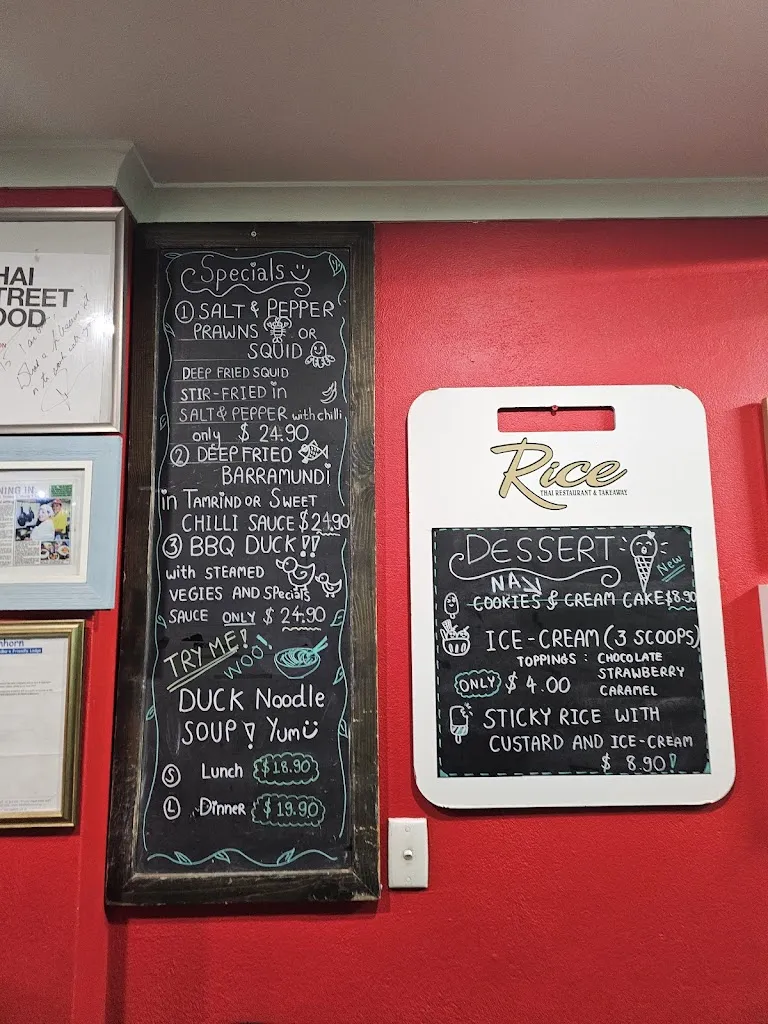 HAI
TREET
OOD
Specials
① SALT & PEPPER
PRAWNS OR
SQUID
DEEP FRIED SQUID
STIR-FRIED in
SALT & PEPPER with chilli
only $24.90
② DEEP FRIED
BARRAMUNDi
in TAMRIND OR SWEET
CHILLI SAUCE $24.90
③ BBQ DUCK!!
with STEAMED
VEGIES AND SPecials
SAUCE ONLY $24.90
TRY ME!
WOO!
DUCK Noodle
SOUP! Yum
Ⓢ Lunch $18.90
Ⓛ Dinner $19.90
Rice
THAI RESTAURANT & TAKEAWAY
DESSERT
New
NAV
COOKIES & CREAM CAKE $8.90
ICE-CREAM (3 SCOOPS)
TOPPINGS : CHOCOLATE
STRAWBERRY
CARAMEL
ONLY $4.00
STICKY RICE WITH
CUSTARD AND ICE-CREAM
$8.90!
NING IN
nhorn